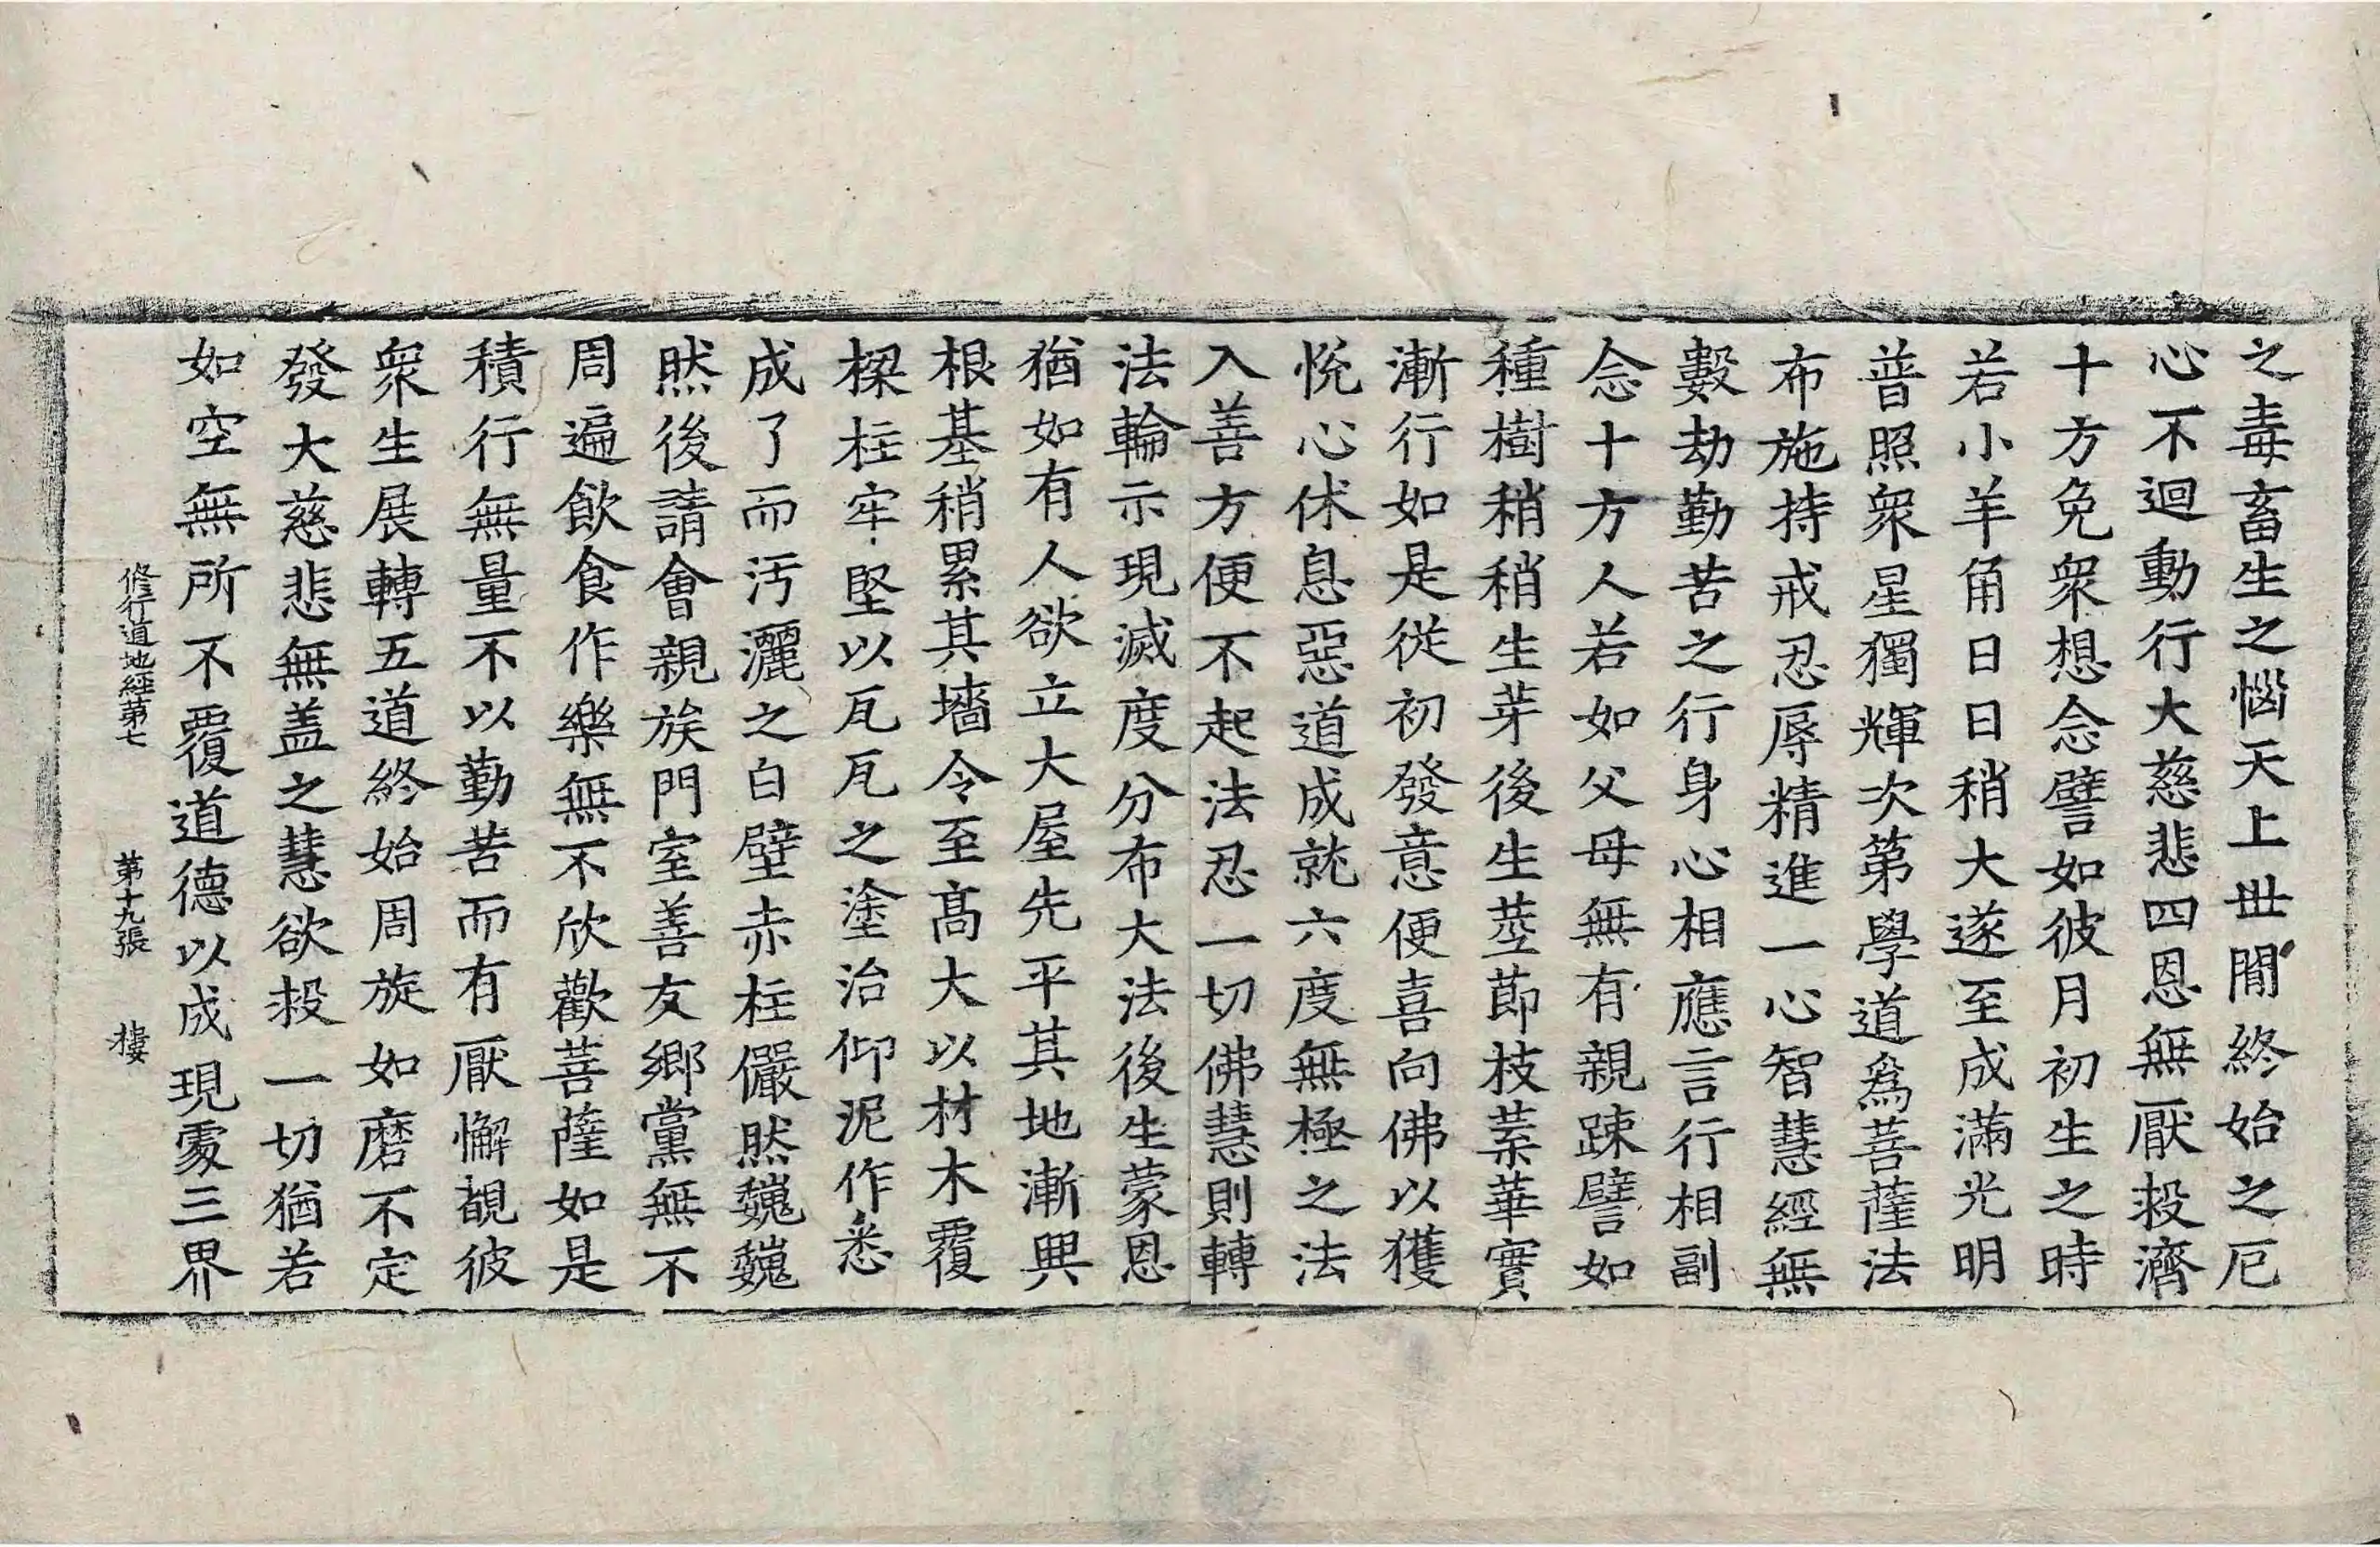 之毒畜生之惱天上世閒終始之厄
心不迴動行大慈悲四恩無厭投濟
十方免衆想念譬如彼月初生之時
若小羊角日日稍大遂至成滿光明
普照衆星獨輝次第學道爲菩薩法
布施持戒忍辱精進一心智慧經無
數劫勤苦之行身心相應言行相副
念十方人若如父母無有親踈譬如
種樹稍稍生芽後生莖節枝葉華實
漸行如是從初發意便喜向佛以獲
悅心休息惡道成就六度無極之法
入善方便不起法忍一切佛慧則轉
法輪示現滅度分布大法後生蒙恩
猶如有人欲立大屋先平其地漸興
根基稍累其墻令至高大以材木覆
樑柱牢堅以瓦瓦之塗治仰泥作悉
成了而汚灑之白壁赤柱儼然巍巍
然後請會親族門室善友鄉黨無不
周遍飮食作樂無不欣歡菩薩如是
積行無量不以勤苦而有厭懈覩彼
衆生展轉五道終始周旋如磨不定
發大慈悲無盖之慧欲投一切猶若
如空無所不覆道德以成現處三界
修行道地經第七　第十九張　樓